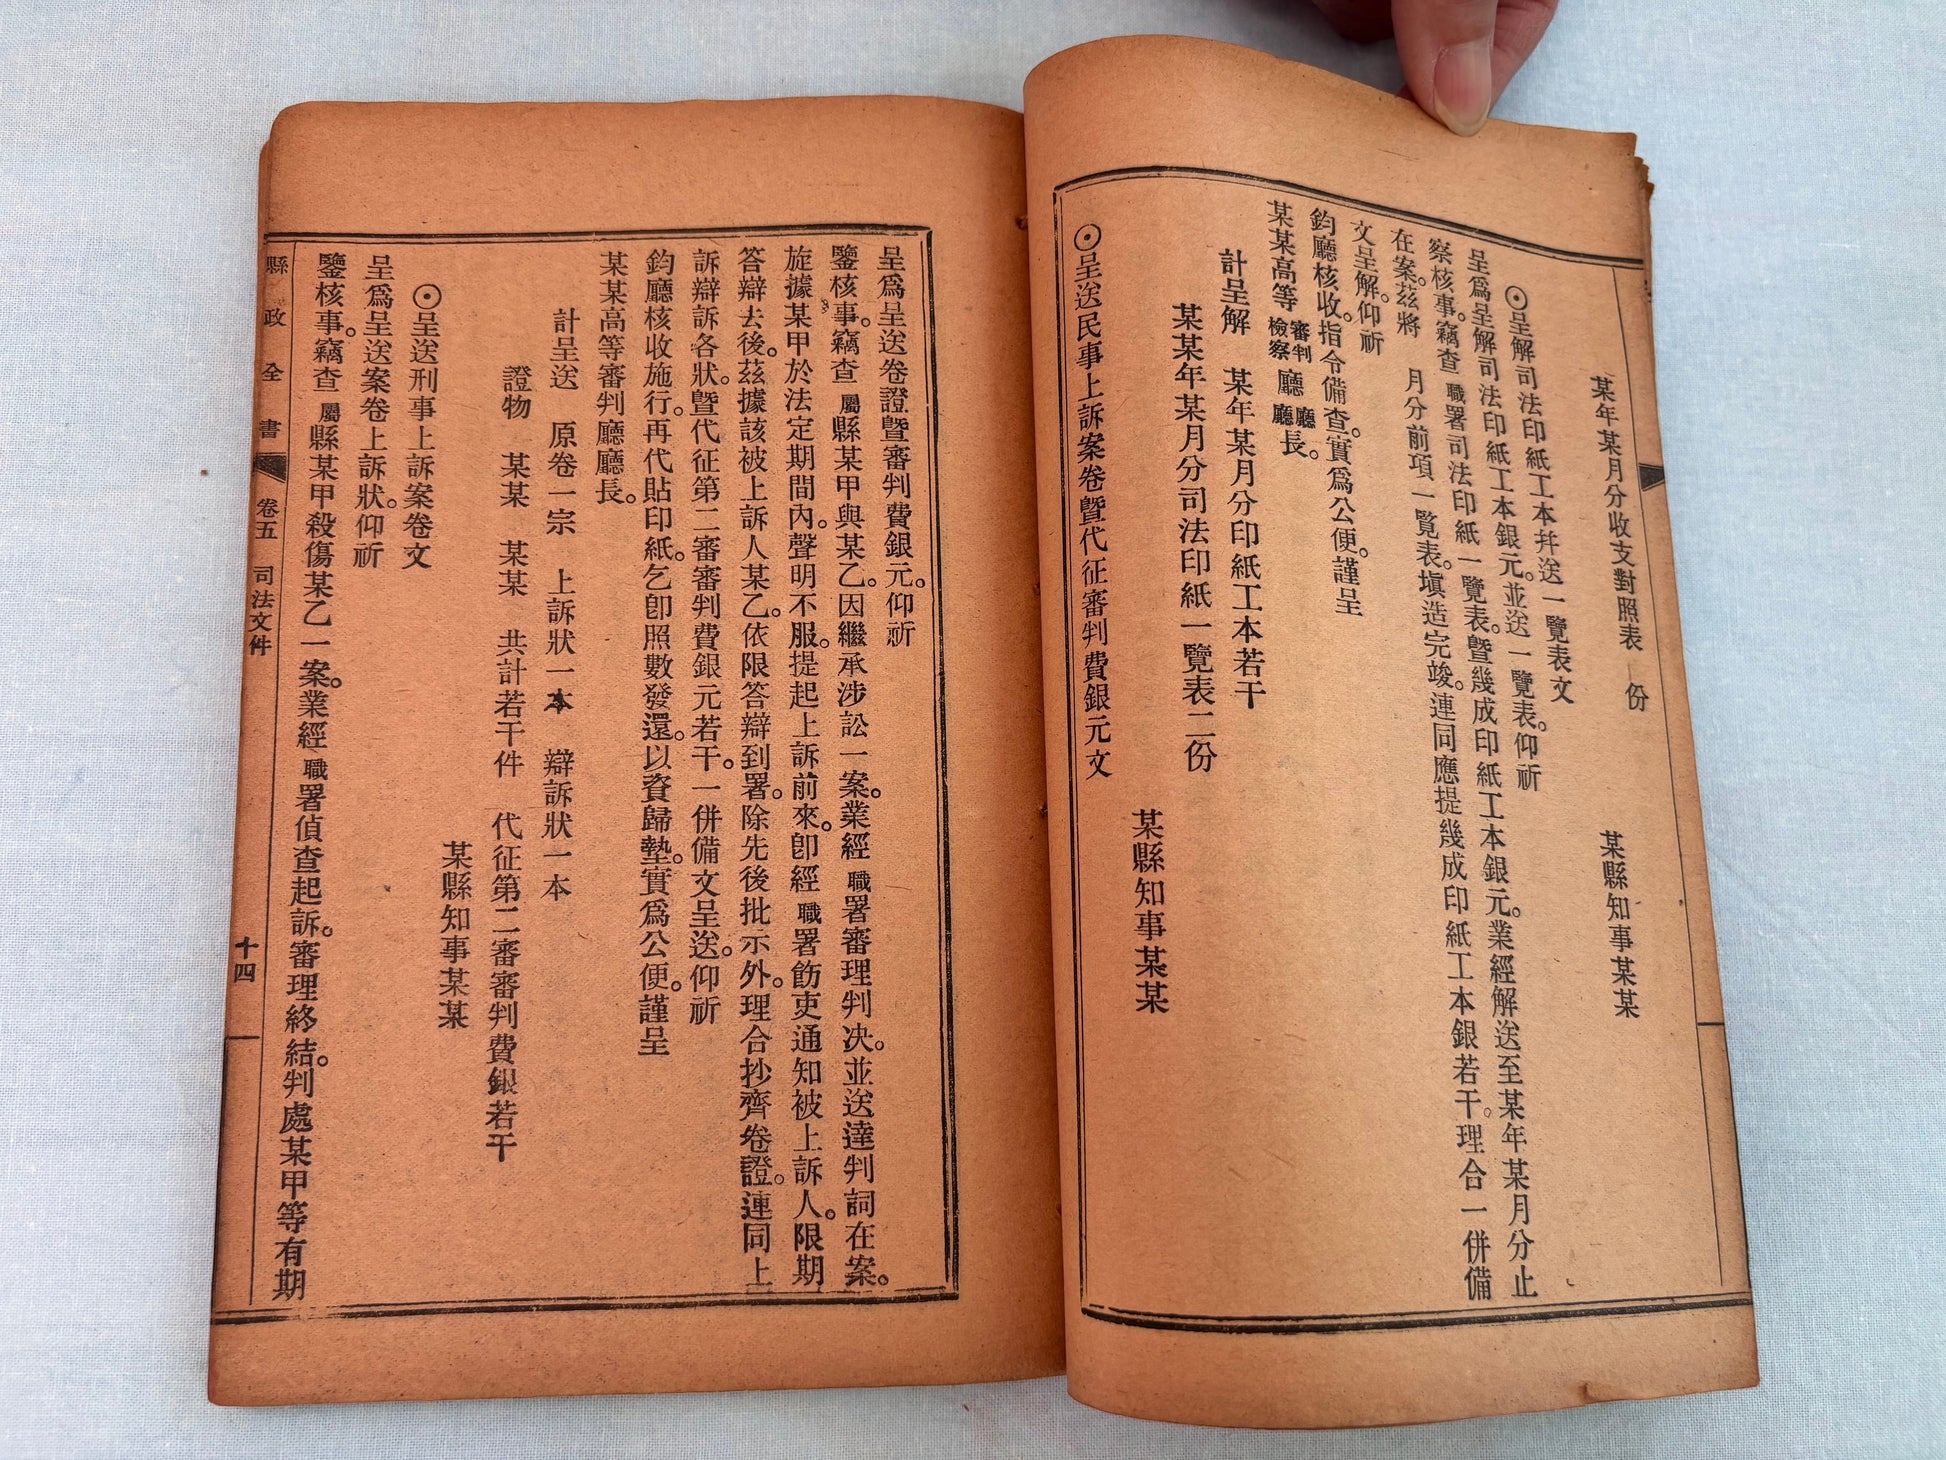 某年某月分收支對照表　份
某縣知事某某
⊙呈解司法印紙工本并送一覽表文
呈爲呈解司法印紙工本銀元。並送一覽表。仰祈
察核事。竊查職署司法印紙一覽表。曁幾成印紙工本銀元。業經解送至某年某月分止
在案。茲將　月分前項一覽表。塡造完竣。連同應提幾成印紙工本銀若干。理合一併備
文呈解。仰祈
鈞廳核收。指令備查。實爲公便。謹呈
某某高等審判檢察廳廳廳長。
計呈解　某年某月分印紙工本若干
某某年某月分司法印紙一覽表二份
某縣知事某某
⊙呈送民事上訴案卷曁代征審判費銀元文
呈爲呈送卷證曁審判費銀元。仰祈
鑒核事。竊查屬縣某甲與某乙。因繼承涉訟一案。業經職署審理判决。並送達判詞在案。
旋據某甲於法定期間內。聲明不服。提起上訴前來。卽經職署飭吏通知被上訴人。限期
答辯去後。茲據該被上訴人某乙。依限答辯到署。除先後批示外。理合抄齊卷證。連同上
訴辯訴各狀。曁代征第二審審判費銀元若干。一併備文呈送。仰祈
鈞廳核收施行。再代貼印紙。乞卽照數發還。以資歸墊。實爲公便。謹呈
某某高等審判廳廳長。
計呈送　原卷一宗　上訴狀一本　辯訴狀一本
證物　某某　某某　共計若干件　代征第二審審判費銀若干
某縣知事某某
⊙呈送刑事上訴案卷文
呈爲呈送案卷上訴狀。仰祈
鑒核事。竊查屬縣某甲殺傷某乙一案。業經職署偵查起訴。審理終結。判處某甲等有期
縣政全書　卷五　司法文件　十四